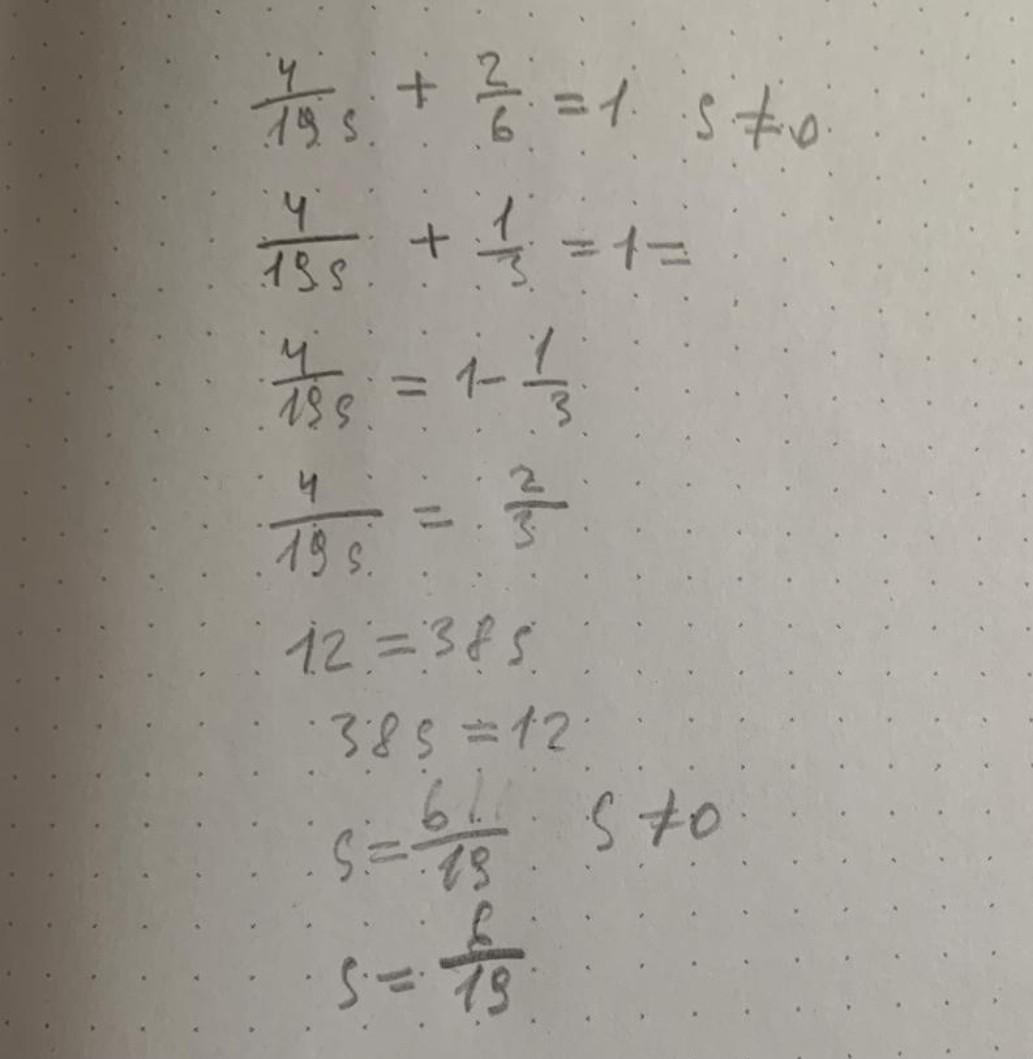 4/19s + 2/6 = 1 s ≠ 0
4/19s + 1/3 = 1 =
4/19s = 1 - 1/3
4/19s = 2/3
12 = 38s
38s = 12
s = 6/19 s ≠ 0
s = 6/19